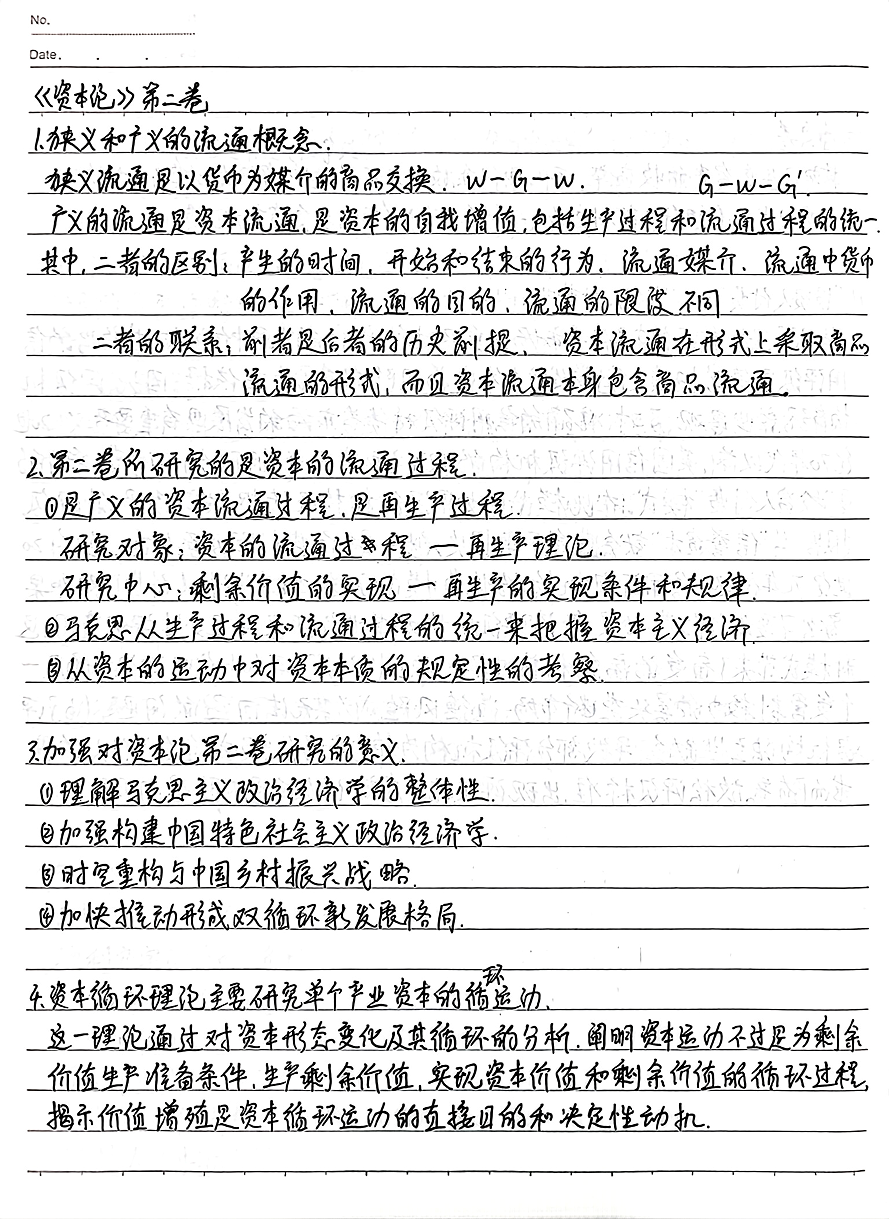 No.
Date. . .
《资本论》第二卷
1.狭义和广义的流通概念.
狭义流通是以货币为媒介的商品交换. W-G-W. G-W-G'.
广义的流通是资本流通,是资本的自我增值,包括生产过程和流通过程的统一.
其中,二者的区别:产生的时间、开始和结束的行为、流通媒介、流通中货币
的作用、流通的目的、流通的限度不同
二者的联系:前者是后者的历史前提、资本流通在形式上采取商品
流通的形式,而且资本流通本身包含商品流通。
2.第二卷所研究的是资本的流通过程.
①是广义的资本流通过程.是再生产过程.
研究对象:资本的流通过程 — 再生产理论.
研究中心:剩余价值的实现 — 再生产的实现条件和规律.
②马克思从生产过程和流通过程的统一来把握资本主义经济.
③从资本的运动中对资本本质的规定性的考察.
3.加强对资本论第二卷研究的意义.
①理解马克思主义政治经济学的整体性.
②加强构建中国特色社会主义政治经济学.
③时空重构与中国乡村振兴战略.
④加快推动形成双循环新发展格局.
4.资本循环理论主要研究单个产业资本的循环运动.
这一理论通过对资本形态变化及其循环的分析.阐明资本运动不过是为剩余
价值生产准备条件,生产剩余价值,实现资本价值和剩余价值的循环过程,
揭示价值增殖是资本循环运动的直接目的和决定性动机.